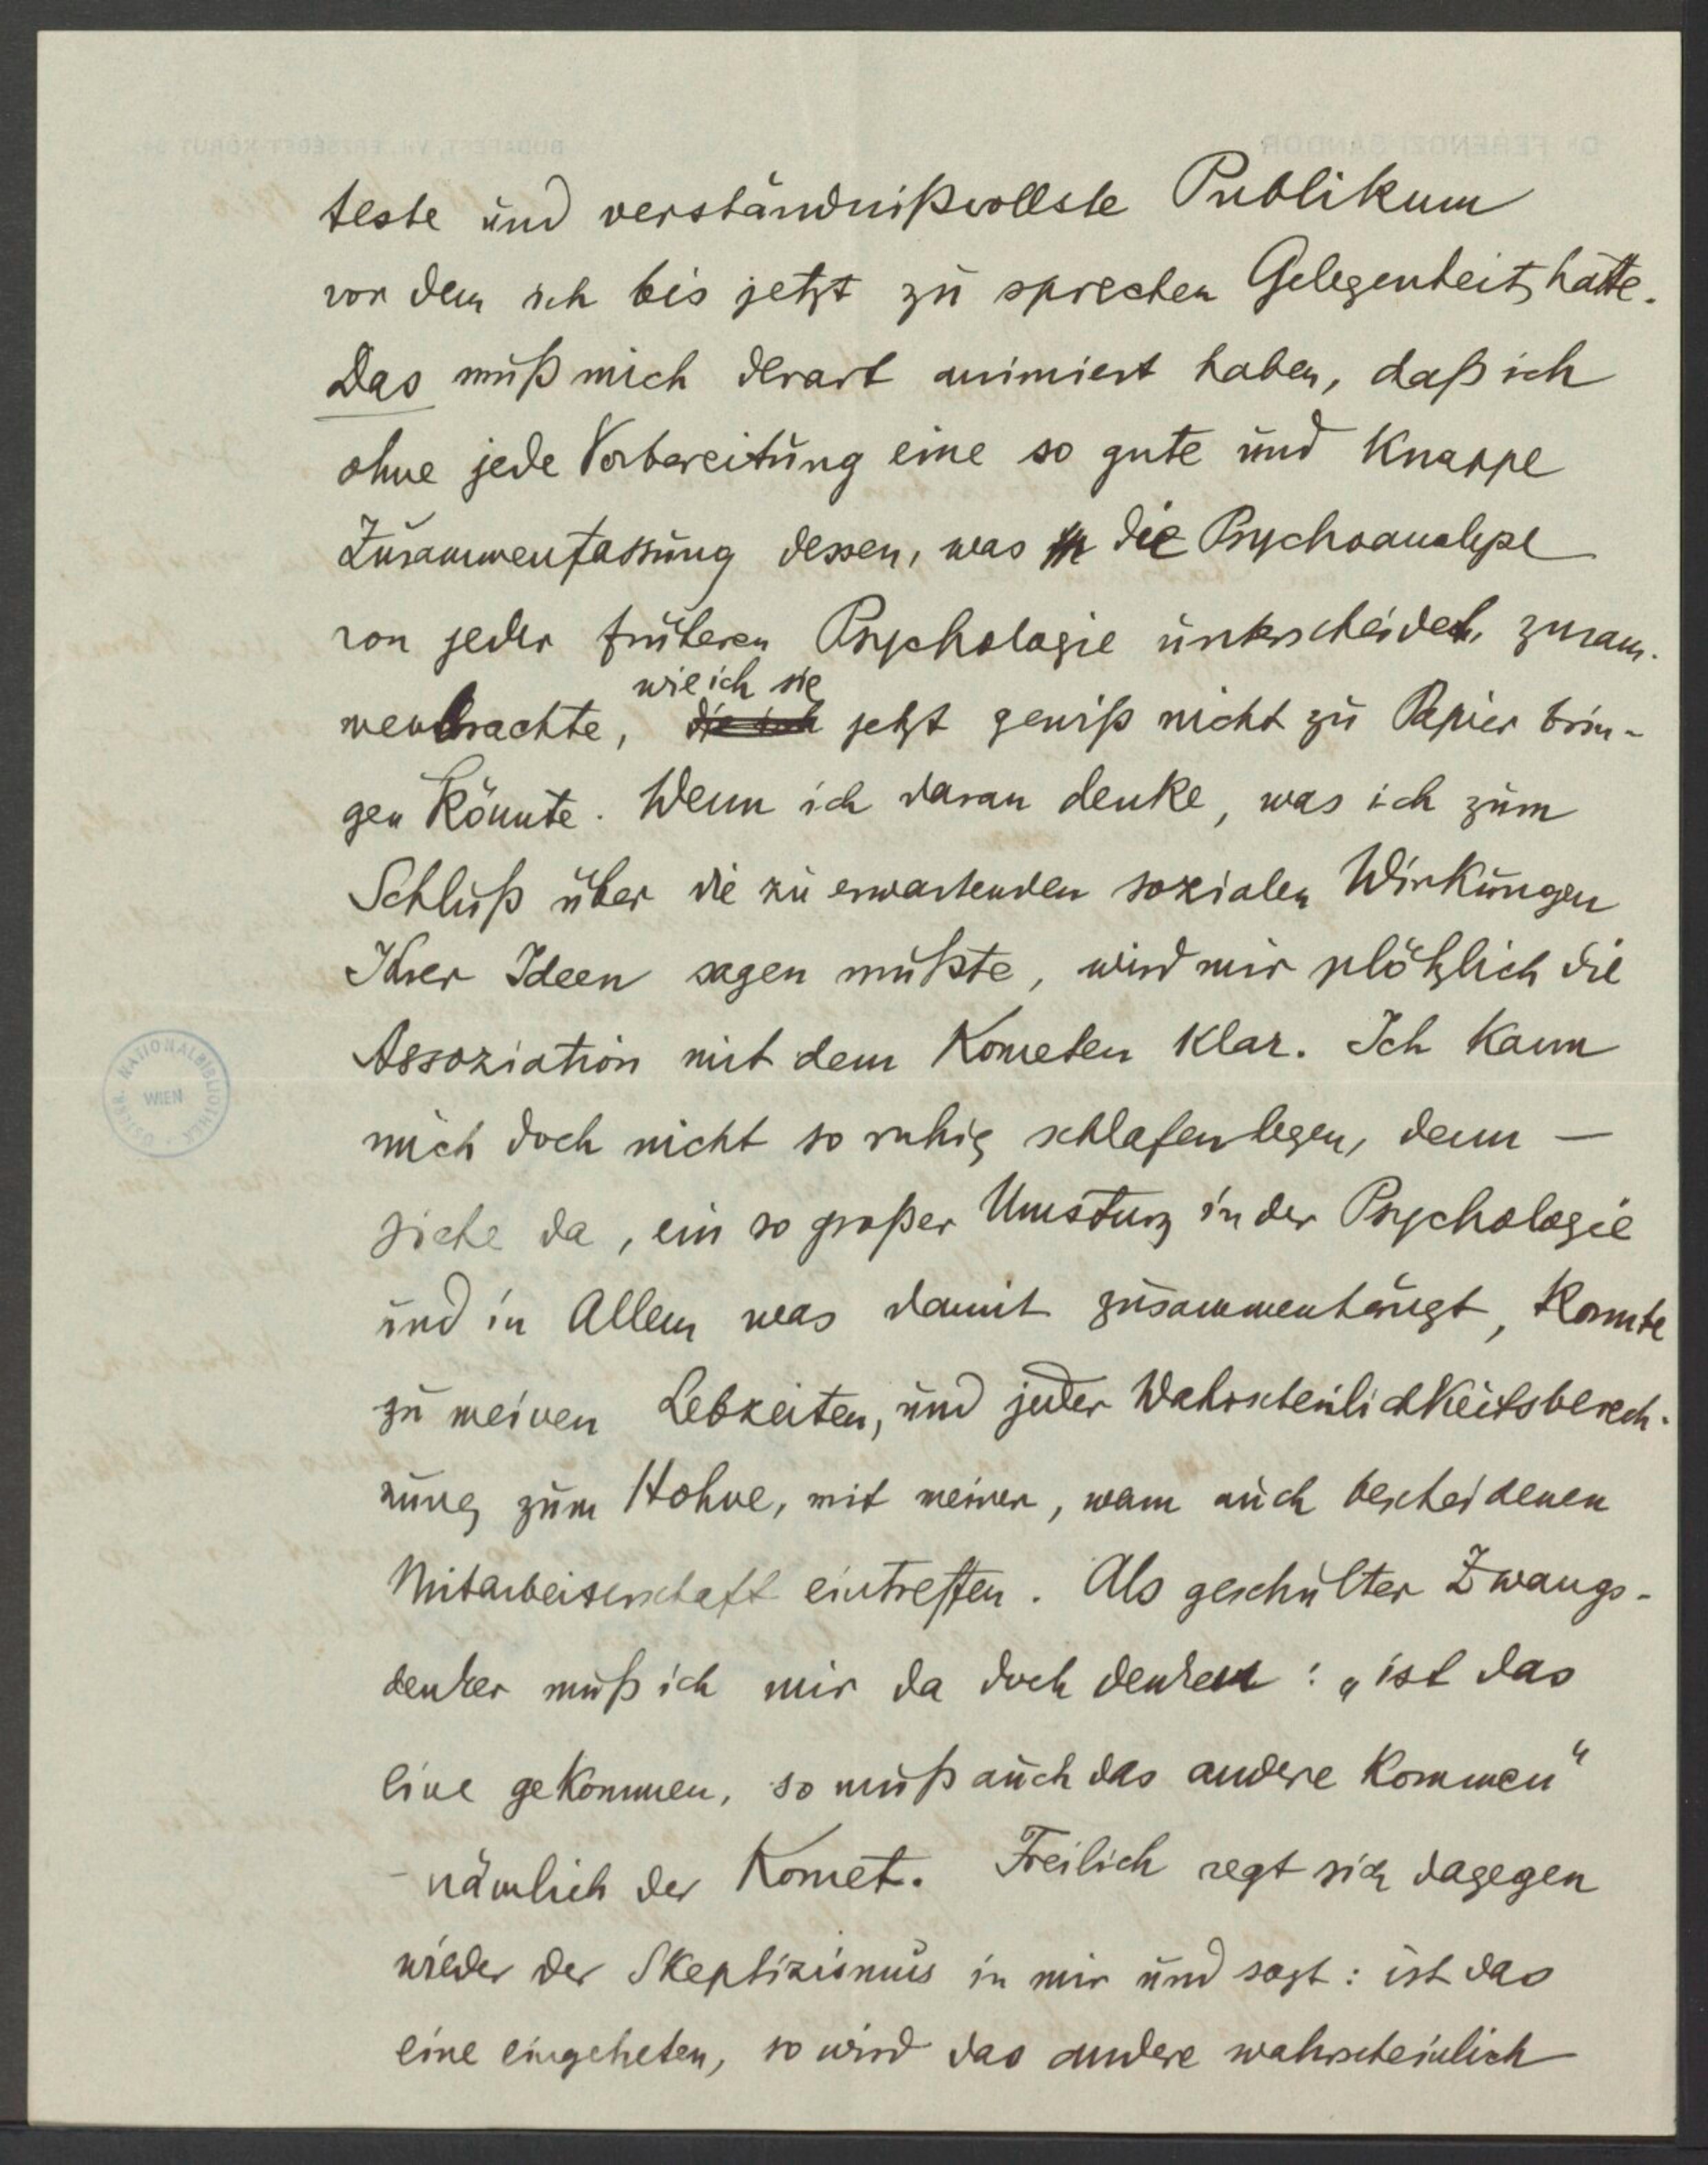 teste und verständnißvollste Publikum
vor dem ich bis jetzt zu sprechen Gelegenheit hatte.
Das muß mich derart animiert haben, daß ich
ohne jede Vorbereitung eine so gute und knappe
Zusammenfassung dessen, was die Psychoanalyse
von jeder früheren Psychologie unterscheidet, zusam-
wie ich sie
menbrachte, die ich jetzt gewiß nicht zu Papier brin-
gen könnte. Wenn ich daran denke, was ich zum
Schluß über die zu erwartenden sozialen Wirkungen
Ihrer Ideen sagen mußte, wird mir plötzlich die
Assoziation mit dem Kometen klar. Ich kann
mich doch nicht so ruhig schlafen legen, denn —
siehe da, ein so großer Umsturz in der Psychologie
und in Allem was damit zusammenhängt, konnte
zu meinen Lebzeiten, und jeder Wahrscheinlichkeitsberech-
nung zum Hohne, mit meiner, wenn auch bescheidenen
Mitarbeiterschaft eintreffen. Als geschulter Zwangs-
denker muß ich mir da doch denken: „ist das
eine gekommen, so muß auch das andere kommen“
- nämlich der Komet. Freilich regt sich dagegen
wieder der Skeptizismus in mir und sagt: ist das
eine eingetreten, so wird das andere wahrscheinlich
ÖSTERR. NATIONALBIBLIOTHEK
WIEN